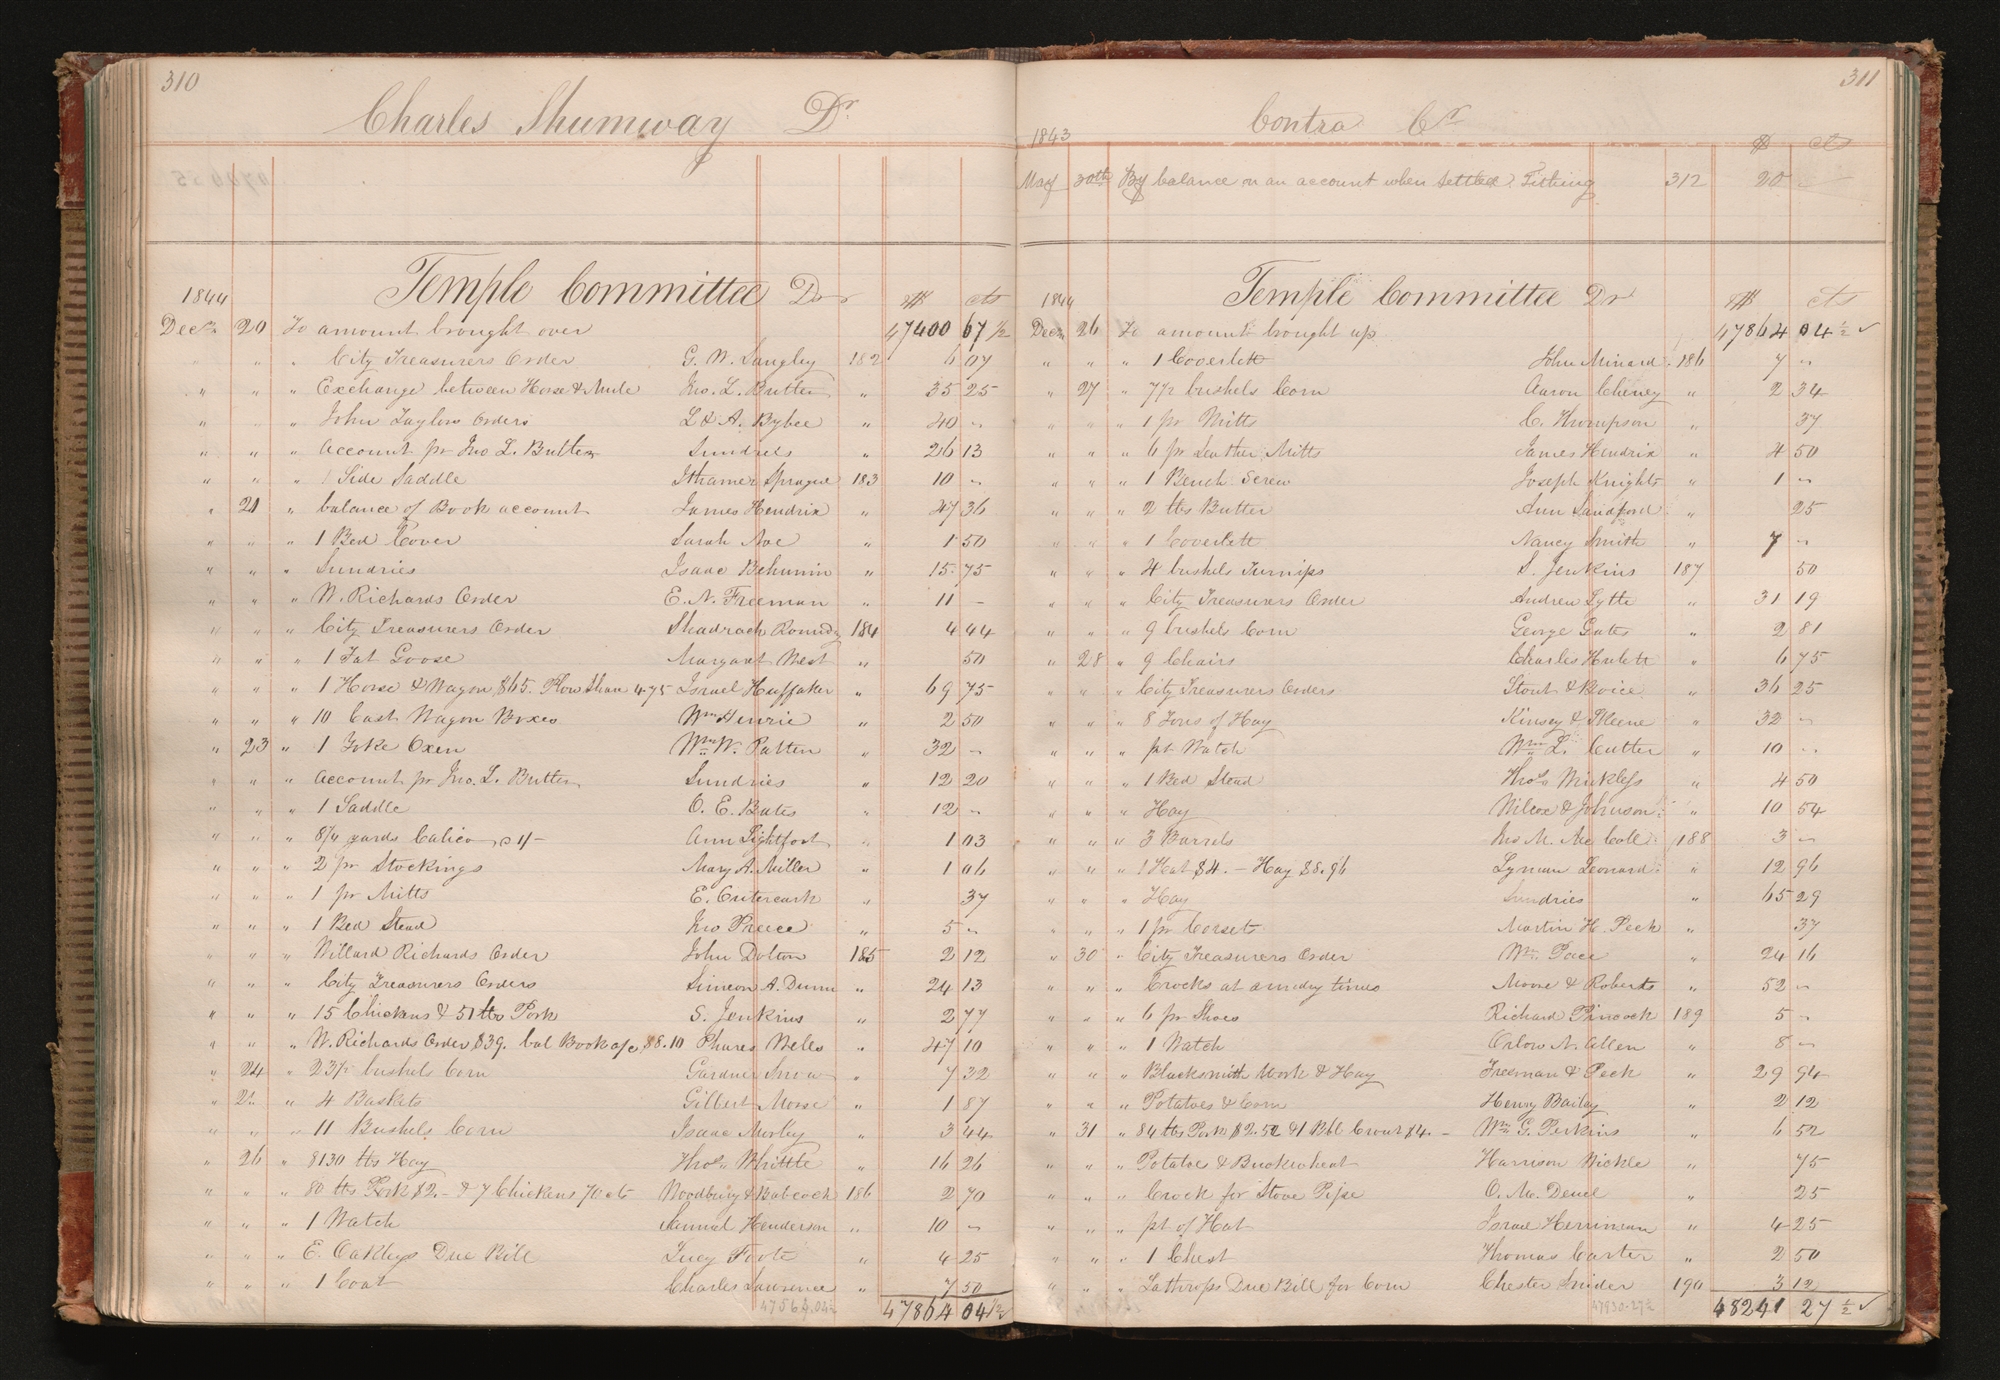 310
Charles Shumway Dr
Temple Committee Dr
1844 $ cts
Decr 20 To amount brought over 47400 67 1/2
" " " City Treasurers Order G. W. Langley 182 6 07
" " " Exchange between Horse & Mule Jno. L. Butler " 35 25
" " " John Taylors orders L & A. Bybee " 40 "
" " " Account pr Jno L. Butler Sundries " 26 13
" " " 1 Side Saddle Ithamer Sprague 183 10 "
" 21 " balance of Book account James Hendrix " 47 36
" " " 1 Bed Cover Sarah Noe " 1 50
" " " Sundries Isaac Behunin " 15 75
" " " W. Richards Order E. N. Freeman " 11 –
" " " City Treasurers Order Shadrach Roundy 184 4 44
" " " 1 Fat Goose Margaret West " 50
" " " 1 Horse & Wagon $65. Plow Share 4.75 Israel Huffaker " 69 75
" " " 10 Cast Wagon Boxes Wm Henrie " 2 50
" 23 " 1 Yoke Oxen Wm W. Patten " 32 "
" " " Account pr Jno. L. Butler Sundries " 12 20
" " " 1 Saddle O. E. Bates " 12 "
" " " 8/4 yards Calico Ann Lightfoot " 1 03
" " " 2 pr Stockings Mary A. Miller " 1 06
" " " 1 pr Mitts E. " 37
" " " 1 Bed Stead Jno Preece " 5 "
" " " Willard Richards Order John Dolton 185 2 12
" " " City Treasurers Orders Simeon A. Dunn " 24 13
" " " 15 Chickens & 51 lbs Pork S. Jenkins " 2 77
" " " W. Richards Order $39. bal Book a/c $8.10 Phares Wells " 47 10
" 24 " bushels Corn Gardner Snow " 7 32
" " 4 Baskets Gilbert Morse " 1 87
" " " 11 Bushels Corn Isaac Morley " 3 44
" 26 " 8130 lbs Hay Thos Whittle " 16 26
" " " 80 lbs Pork $2.– & 7 Chickens 70 cts Woodbury & Babcock 186 2 70
" " " 1 Watch Samuel Henderson " 10 "
" " " E. Oakleys Due Bill Lucy Foote " 4 25
" " " 1 Coat Charles Lawrence " 7 50
47564.04½ 47864 04 1/2
311
Contra Cr
1843 $ cts
May 30th By balance on an account when settled Tithing 312 20 –
Temple Committee Dr
1844 $ cts
Decr 26 To amount brought up 47864 04 1/2 ✓
" " " 1 Coverlett John Minard 186 7 "
" 27 " 7½ bushels Corn Aaron Cheney " 2 34
" " " 1 pr Mitts C. Thompson " 37
" " " 6 pr Leather Mitts James Hendrix " 4 50
" " " 1 Bench Screw Joseph Knights " 1 "
" " " 2 lbs Butter Ann Sandford " 25
" " " 1 Coverlett Nancy Smith " 7 "
" " " 4 bushels Turnips S. Jenkins 187 50
" " " City Treasurers Order Andrew Lytle " 31 19
" " " 9 bushels Corn George Gates " 2 81
" 28 " 9 Chairs Charles Hulett " 6 75
" " " City Treasurers Orders Stout & Royce " 36 25
" " " 8 Tons of Hay Kinsey & " 32 "
" " " pt Watch Wm L. Cutler " 10 "
" " " 1 Bed Stead Thos " 4 50
" " " Hay Wilcox & Johnson " 10 54
" " " 3 Barrels Jno M. Mc Call 188 3 "
" " " 1 Hat $4. – Hay $8.96 Lyman Leonard " 12 96
" " " Hay Sundries " 65 29
" " " 1 pr Corsets Martin H. Peck " 37
" 30 " City Treasurers Order Wm Pace " 24 16
" " " Crocks at sundry times Moore & Roberts " 52 "
" " " 6 pr Shoes Richard Pincock 189 5 "
" " " 1 Watch Orlow N. Allen " 8 "
" " " Blacksmith Work & Hay Freeman & Peck " 29 94
" " " Potatoes & Corn Henry Bailey " 2 12
" 31 " 84 lbs Pork $2.52 & 1 Bbl $4. – Wm G. Perkins " 6 52
" " " Potatoes & Buckwheat Harrison Wickle " 75
" " " Crock for Stove Pipe O. M. Deuel " 25
" " " pt of Hat Israel Herriman " 4 25
" " " 1 Chest Thomas Carter " 2 50
" " " Lathrops Due Bill for Corn Chester Snider 190 3 12
47930.27½ 48241 27 1/2 ✓